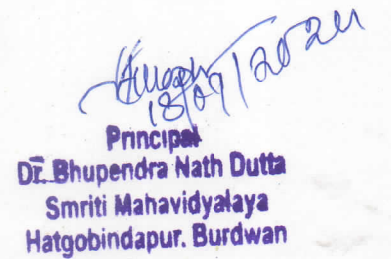 18/07/2024
Principal
Dr. Bhupendra Nath Dutta
Smriti Mahavidyalaya
Hatgobindapur. Burdwan